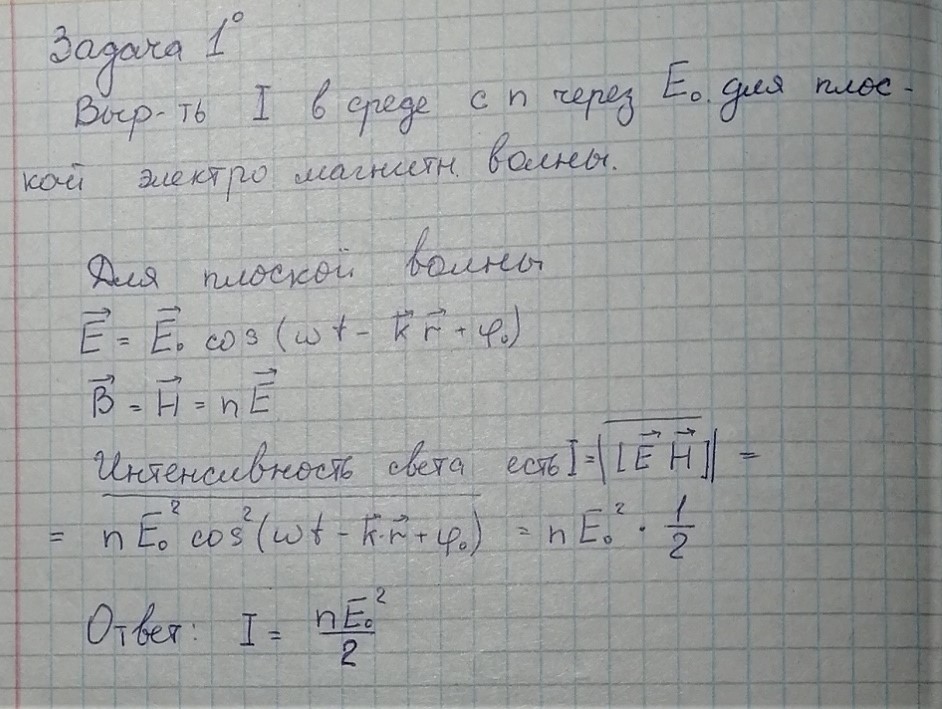 Задача 1°
Выр-ть I в среде с n через E₀ для плос-
кой электро магнитн. волны.
Для плоской волны
E⃗ = E⃗₀ cos (ωt - k⃗ r⃗ + φ₀)
B⃗ = H⃗ = n E⃗
Интенсивность света есть I = |[E⃗ H⃗]| =
= n E₀² cos² (ωt - k⃗·r⃗ + φ₀) = n E₀² · 1/2
Ответ: I = nE₀²/2